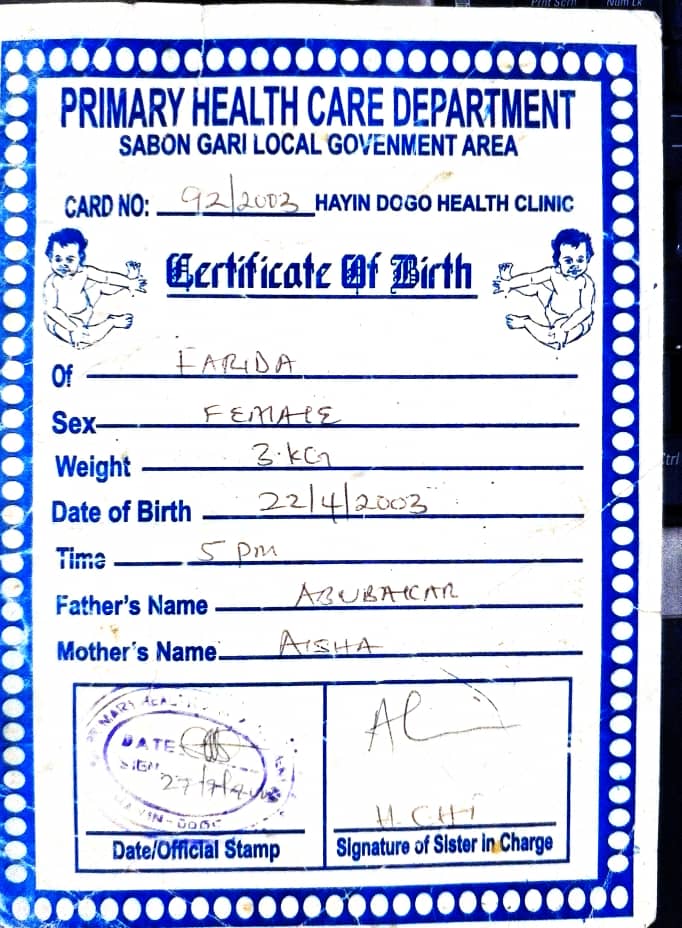 Prnt Scrn Num Lk
PRIMARY HEALTH CARE DEPARTMENT
SABON GARI LOCAL GOVENMENT AREA
CARD NO: 92/2003 HAYIN DOGO HEALTH CLINIC
Certificate Of Birth
Of FARIDA
Sex FEMALE
Weight 3.KG
Date of Birth 22/4/2003
Time 5 pm
Father's Name ABUBAKAR
Mother's Name AISHA
PRIMARY
DATE
SIGN
HAYIN-DOGO
Date/Official Stamp
Signature of Sister in Charge
Ctrl